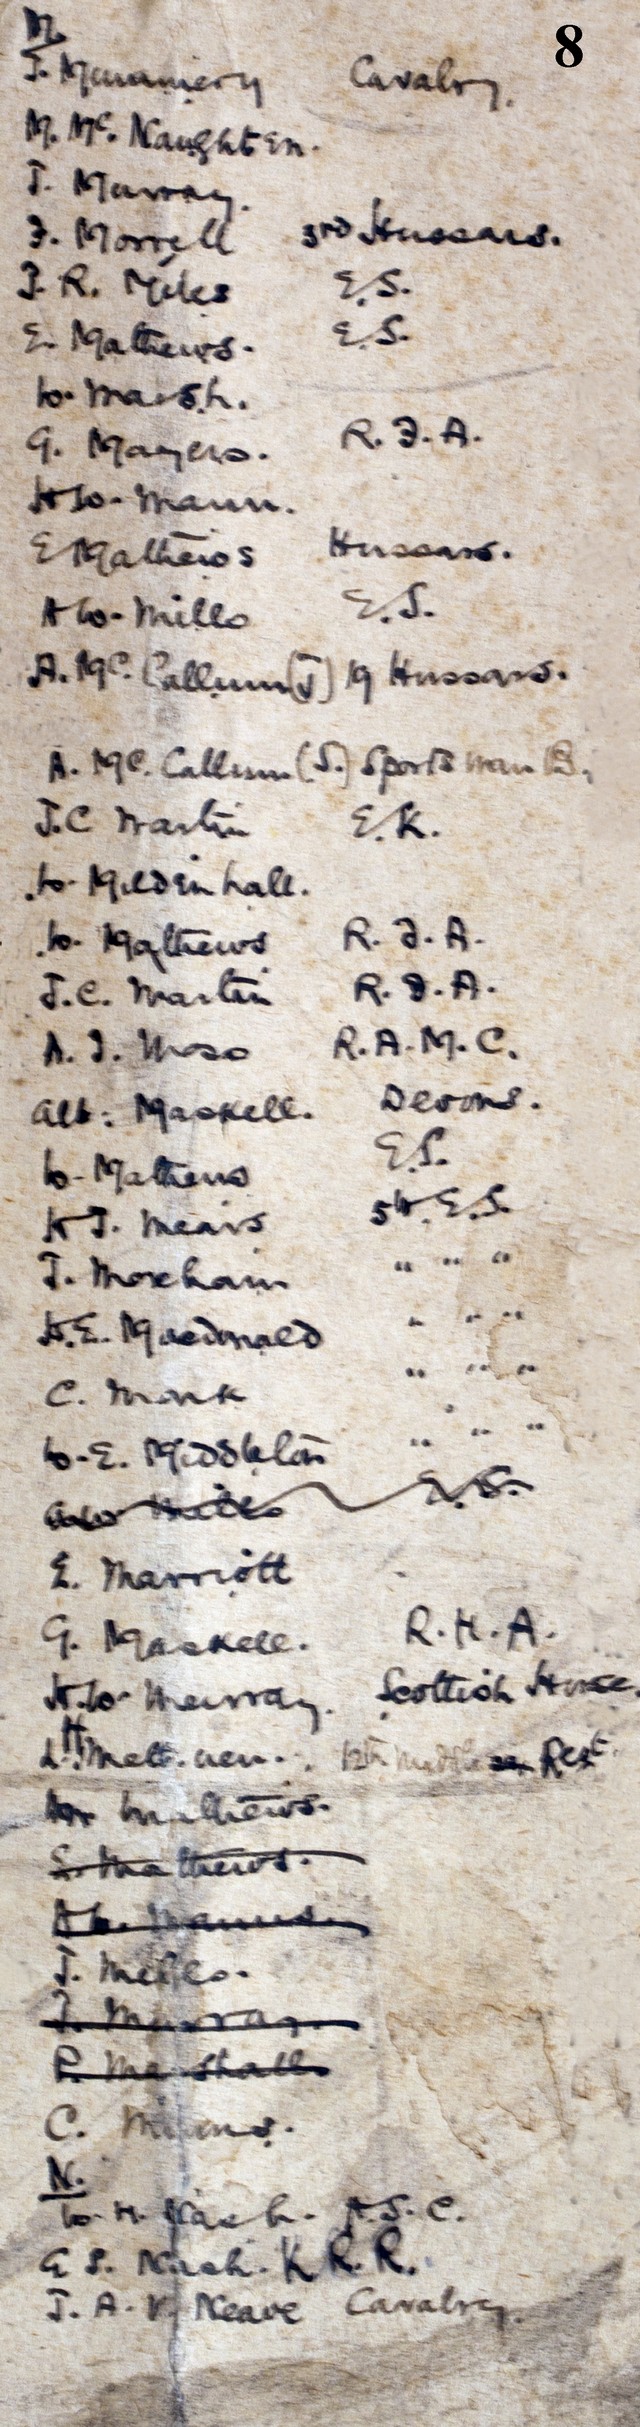 8
M.
J. Cavalry.
M. Mc. Naughten.
J. Murray.
F. Morrell 3rd Hussars.
J. R. Miles E.S.
E. Mathews. E.S.
W. Marsh.
G. Mayers. R.F.A.
H W. Mann.
E Mathews Hussars.
A W. Mills E.S.
A. Mc. Callum (J) 19 Hussars.
A. Mc. Callum (S.) Sportsman B.
J.C Martin E.K.
W. Mildenhall.
W. Mathews R.F.A.
J.C. Martin R.F.A.
A. J. Moss R.A.M.C.
Alb: Maskell. Devons.
W. Mathews E.S.
H J. Mears 5th E.S.
J. Moreham " " "
H.E. Macdonald " " "
C. Monk " " "
W. E. Middleton " " "
E.S.
E. Marriott
G. Maskell. R.H.A.
H.W. Murray. Scottish Horse.
Lt. 12th Middlesex Regt.
Mathews.
E. Mathews.
J. Mills.
J. Murray.
P. Marshall
C.
N.
W. H. Nash. A.S.C.
E S. Nash. K R.R.
J. A. V. Neave Cavalry.